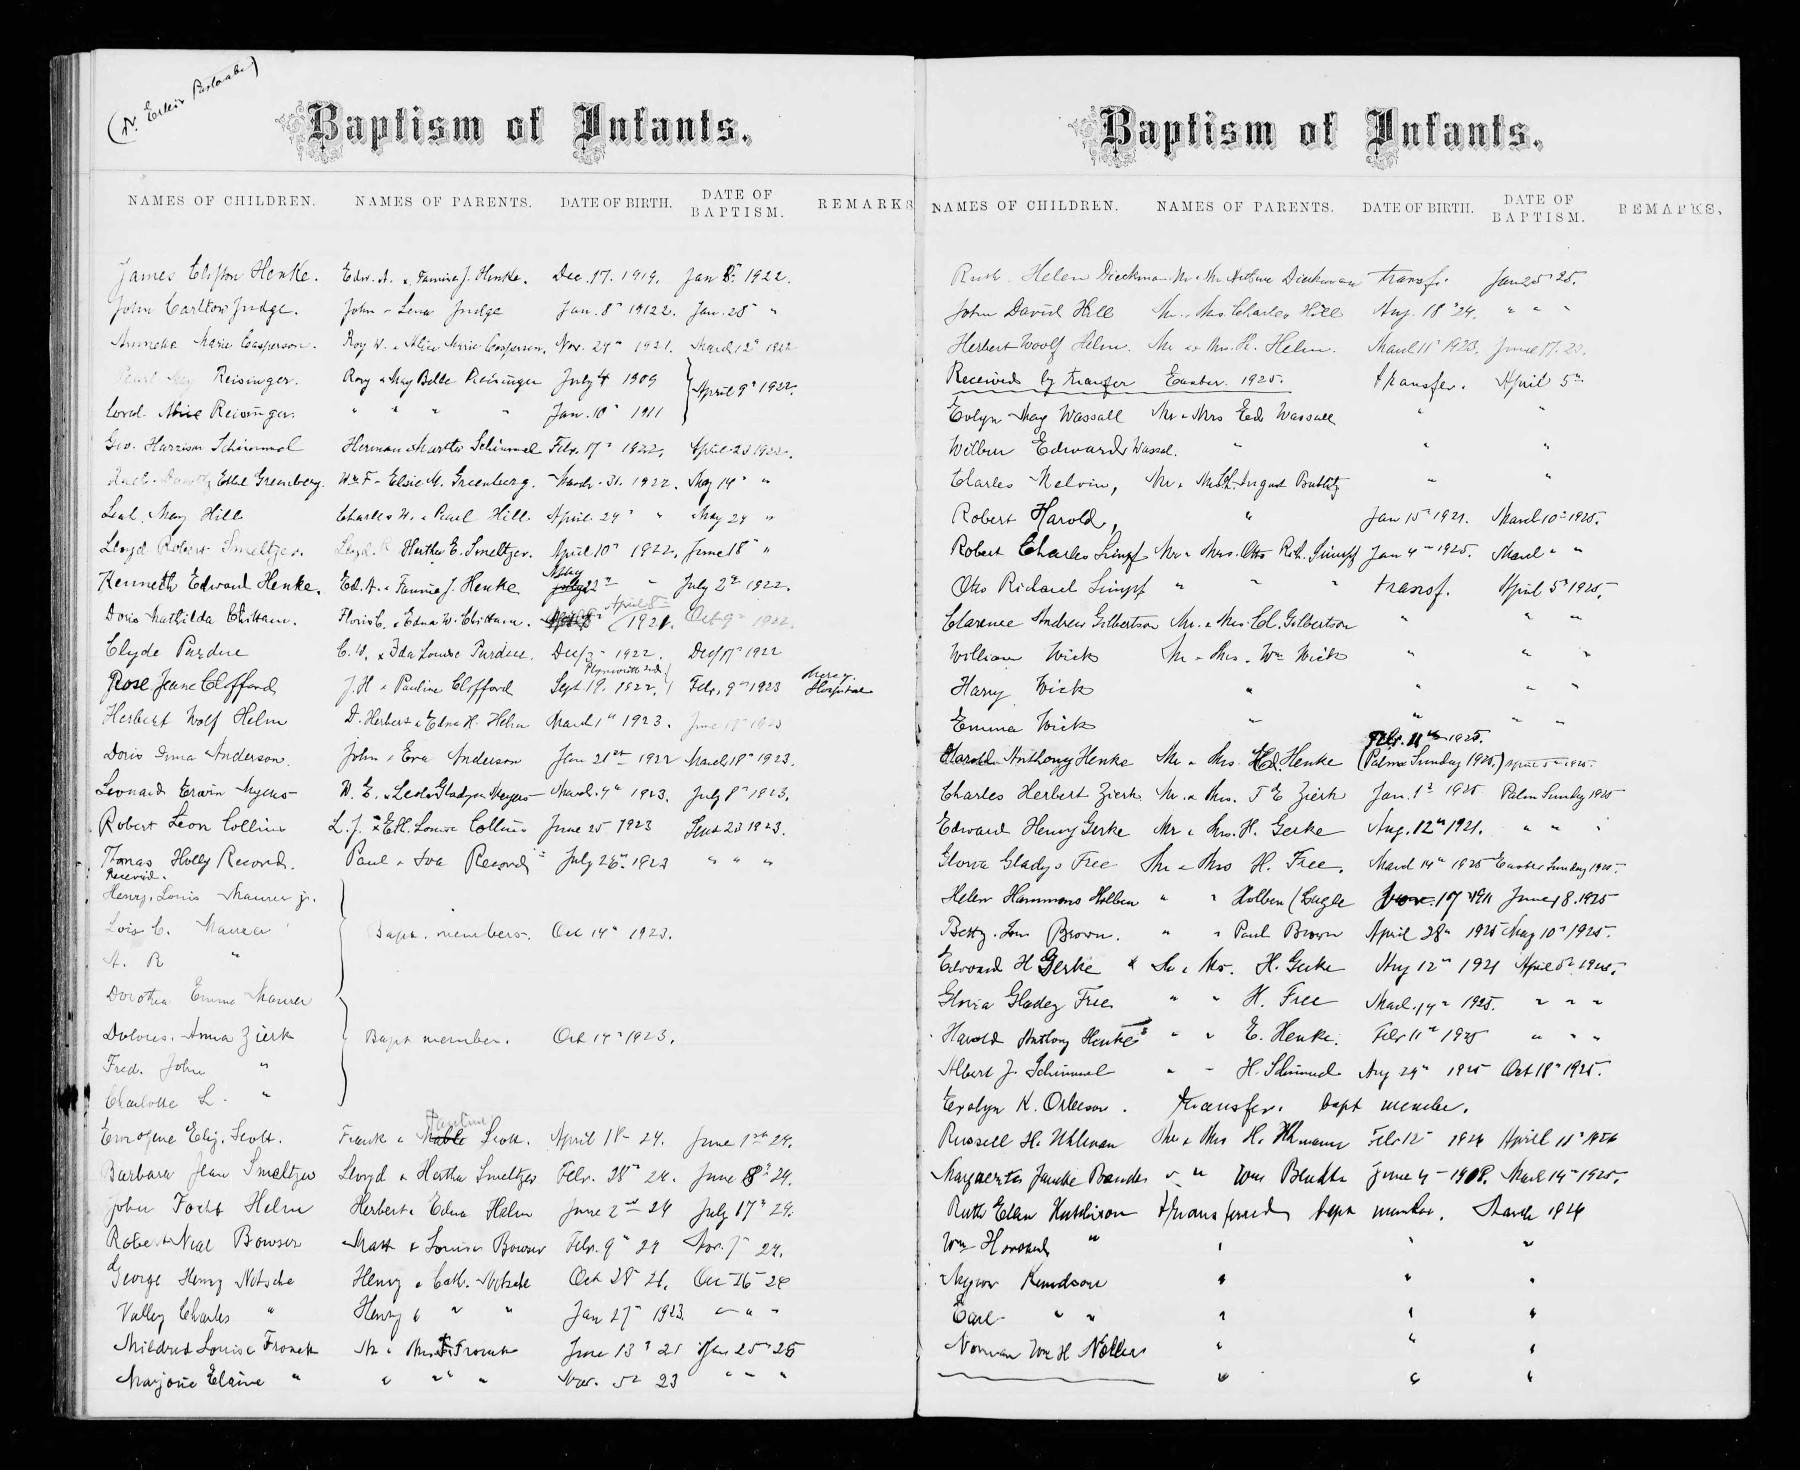 Baptism of Infants.
NAMES OF CHILDREN. NAMES OF PARENTS. DATE OF BIRTH. DATE OF BAPTISM. REMARKS
James Clifton Henke. Edw. A. & Fannie J. Henke. Dec. 17. 1919. Jan 8" 1922.
John Carlton Judge. John - Lena Judge Jan. 8" 19122. Jan. 28" "
Marie Casperson. Roy W. & Alice Marie Casperson. Nov. 24" 1921. March 12" 1922
Reisinger. Roy & May Belle Reisinger July 4 1909 April 9" 1922.
Reisinger. " " " " Jan. 10" 1911
Geo. Harrison Schimmel Herman & Martha Schimmel Febr. 17" 1922. April 23 1922.
Ethel Greenberg. Wm F - Elsie M. Greenberg. March 31. 1922. May 14" "
May Hill Charles W. & Pearl Hill. April 24" " May 24 "
Lloyd Robert Smeltzer. Lloyd. R Hertha E. Smeltzer. April 10" 1922. June 18" "
Kenneth Edward Henke. Ed. A. & Fannie J. Henke May 22" " July 2" 1922.
Doris Mathilda Chittam. Floris C. & Edna W. Chittam. April 8" 1921. Oct 9" 1922.
Clyde Purdue C. W. & Ida Louise Purdue. Dec/3" 1922. Dec/17" 1922
Rose Jeane Clofford J. H & Pauline Clofford Sept 19. 1922. Febr. 9" 1923 Mercy Hospital
Herbert Wolf Helm D. Herbert & Edna H. Helm March 1" 1923. June 17" 1923
Doris Irma Anderson. John & Eva Anderson Jan 21st 1922 March 18" 1923.
Leonard Erwin Myers W. E. & Leola Gladys Meyers March. 4" 1923. July 8" 1923.
Robert Leon Collins L. J. & Eth. Louise Collins June 25 1923 Sept 23 1923.
Thomas Holly Record. Paul & Iva Record July 26" 1923 " " "
Received.
Henry, Louis Maurer jr.
Lois C. Maurer Bapt. members. Oct 14" 1923.
A. R "
Dorothea Emma Maurer
Dolores. Anna Zierk Bapt member. Oct 14" 1923.
Fred. John "
Charlotte L. "
Emogene Eliz. Scott. Frank & Pauline Scott. April 18" 24. June 1st 24.
Barbara Jean Smeltzer Lloyd & Hertha Smeltzer Febr. 28" 24. June 8" 24.
John Helm Herbert & Edna Helm June 2nd 24 July 17" 24.
Robert Neal Bowser Matt & Louise Bowser Febr. 9" 24 Nov. 24.
George Henry Notsche Henry & Cath. Notsche Oct 28" 21. Oct 26 24
Valley Charles " Henry & " " Jan 27" 1923. " " "
Mildred Louise Fronek Mr & Mrs F. Fronek June 13" 21 Jan 25" 25
Marjorie Elaine " " " " Nov. 5" 23 " " "
Baptism of Infants.
NAMES OF CHILDREN. NAMES OF PARENTS. DATE OF BIRTH. DATE OF BAPTISM. REMARKS.
Ruth Helen Dieckman Mr & Mr Dieckman transf. Jan 25" 25.
John David Hill Mr. & Mrs Charles Hill Aug. 18" 24. " " "
Herbert Woolf Helm. Mr & Mrs. H. Helm. March 1" 1923. June 17. 23.
Received by transfer Easter. 1925. transfer. April 5"
Evlyn May Wassall Mr & Mrs Ed Wassall " "
Wilbur Edward Wassal. " " "
Charles Melvin, Mr. & Mrs August Bublitz " "
Robert Harold, " Jan 15" 1921. March 10" 1925.
Robert Charles Simpf Mr & Mrs. Otto Rich. Simpf Jan 4" 1925. March " "
Otto Richard Simpf " " " transf. April 5" 1925.
Clarence Andrew Gilbertson Mr. & Mrs. Cl. Gilbertson " " "
William Wick Mr & Mrs. Wm Wick " " "
Harry Wick " " " "
Emma Wick " " " "
Harold Anthony Henke Mr & Mrs. Ed. Henke Febr. 11th 1925. (Palm Sunday 1925.) April 5" 1925.
Charles Herbert Zierk Mr. & Mrs. T E Zierk Jan. 1" 1925 Palm Sunday 1925
Edward Henry Gerke Mr & Mrs. H. Gerke Aug. 12" 1921. " " "
Gloria Gladys Free Mr & Mrs H. Free. March 14" 1925 Easter Sunday 1925.
Helen Hammons Holben " " Holben (Engle Nov. 17 1911 June 18. 1925
Betty. Lou Brown. " " Paul Brown April 28" 1925 May 10" 1925.
Edward H Gerke Mr & Mrs. H. Gerke Aug 12" 1921 April 5" 1925.
Gloria Gladys Free " " H. Free March. 14" 1925. " " "
Harold Anthony Henke " " E. Henke. Febr 11" 1925 " " "
Albert J. Schimmel " " H. Schimmel Aug 29" 1925 Oct 18" 1925.
Evalyn K. Orleson. transfer. bapt member.
Russell H. Uhlman Mr & Mrs H. Uhlmann Febr 12" 1926 April 11" 1926
Margaerta Bender " " Wm June 4" 1908. March 14" 1925.
Ruth Ellen Hutchison transferred bapt member. March 1926
Wm Howard " " " "
Myron Knudson " " "
Earl " " " " "
Norman Wm H Nolles " " "
" " "